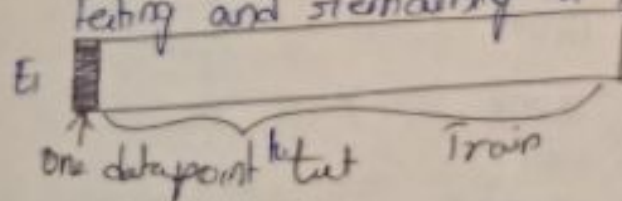 testing and
E₁
One datapoint to test Train